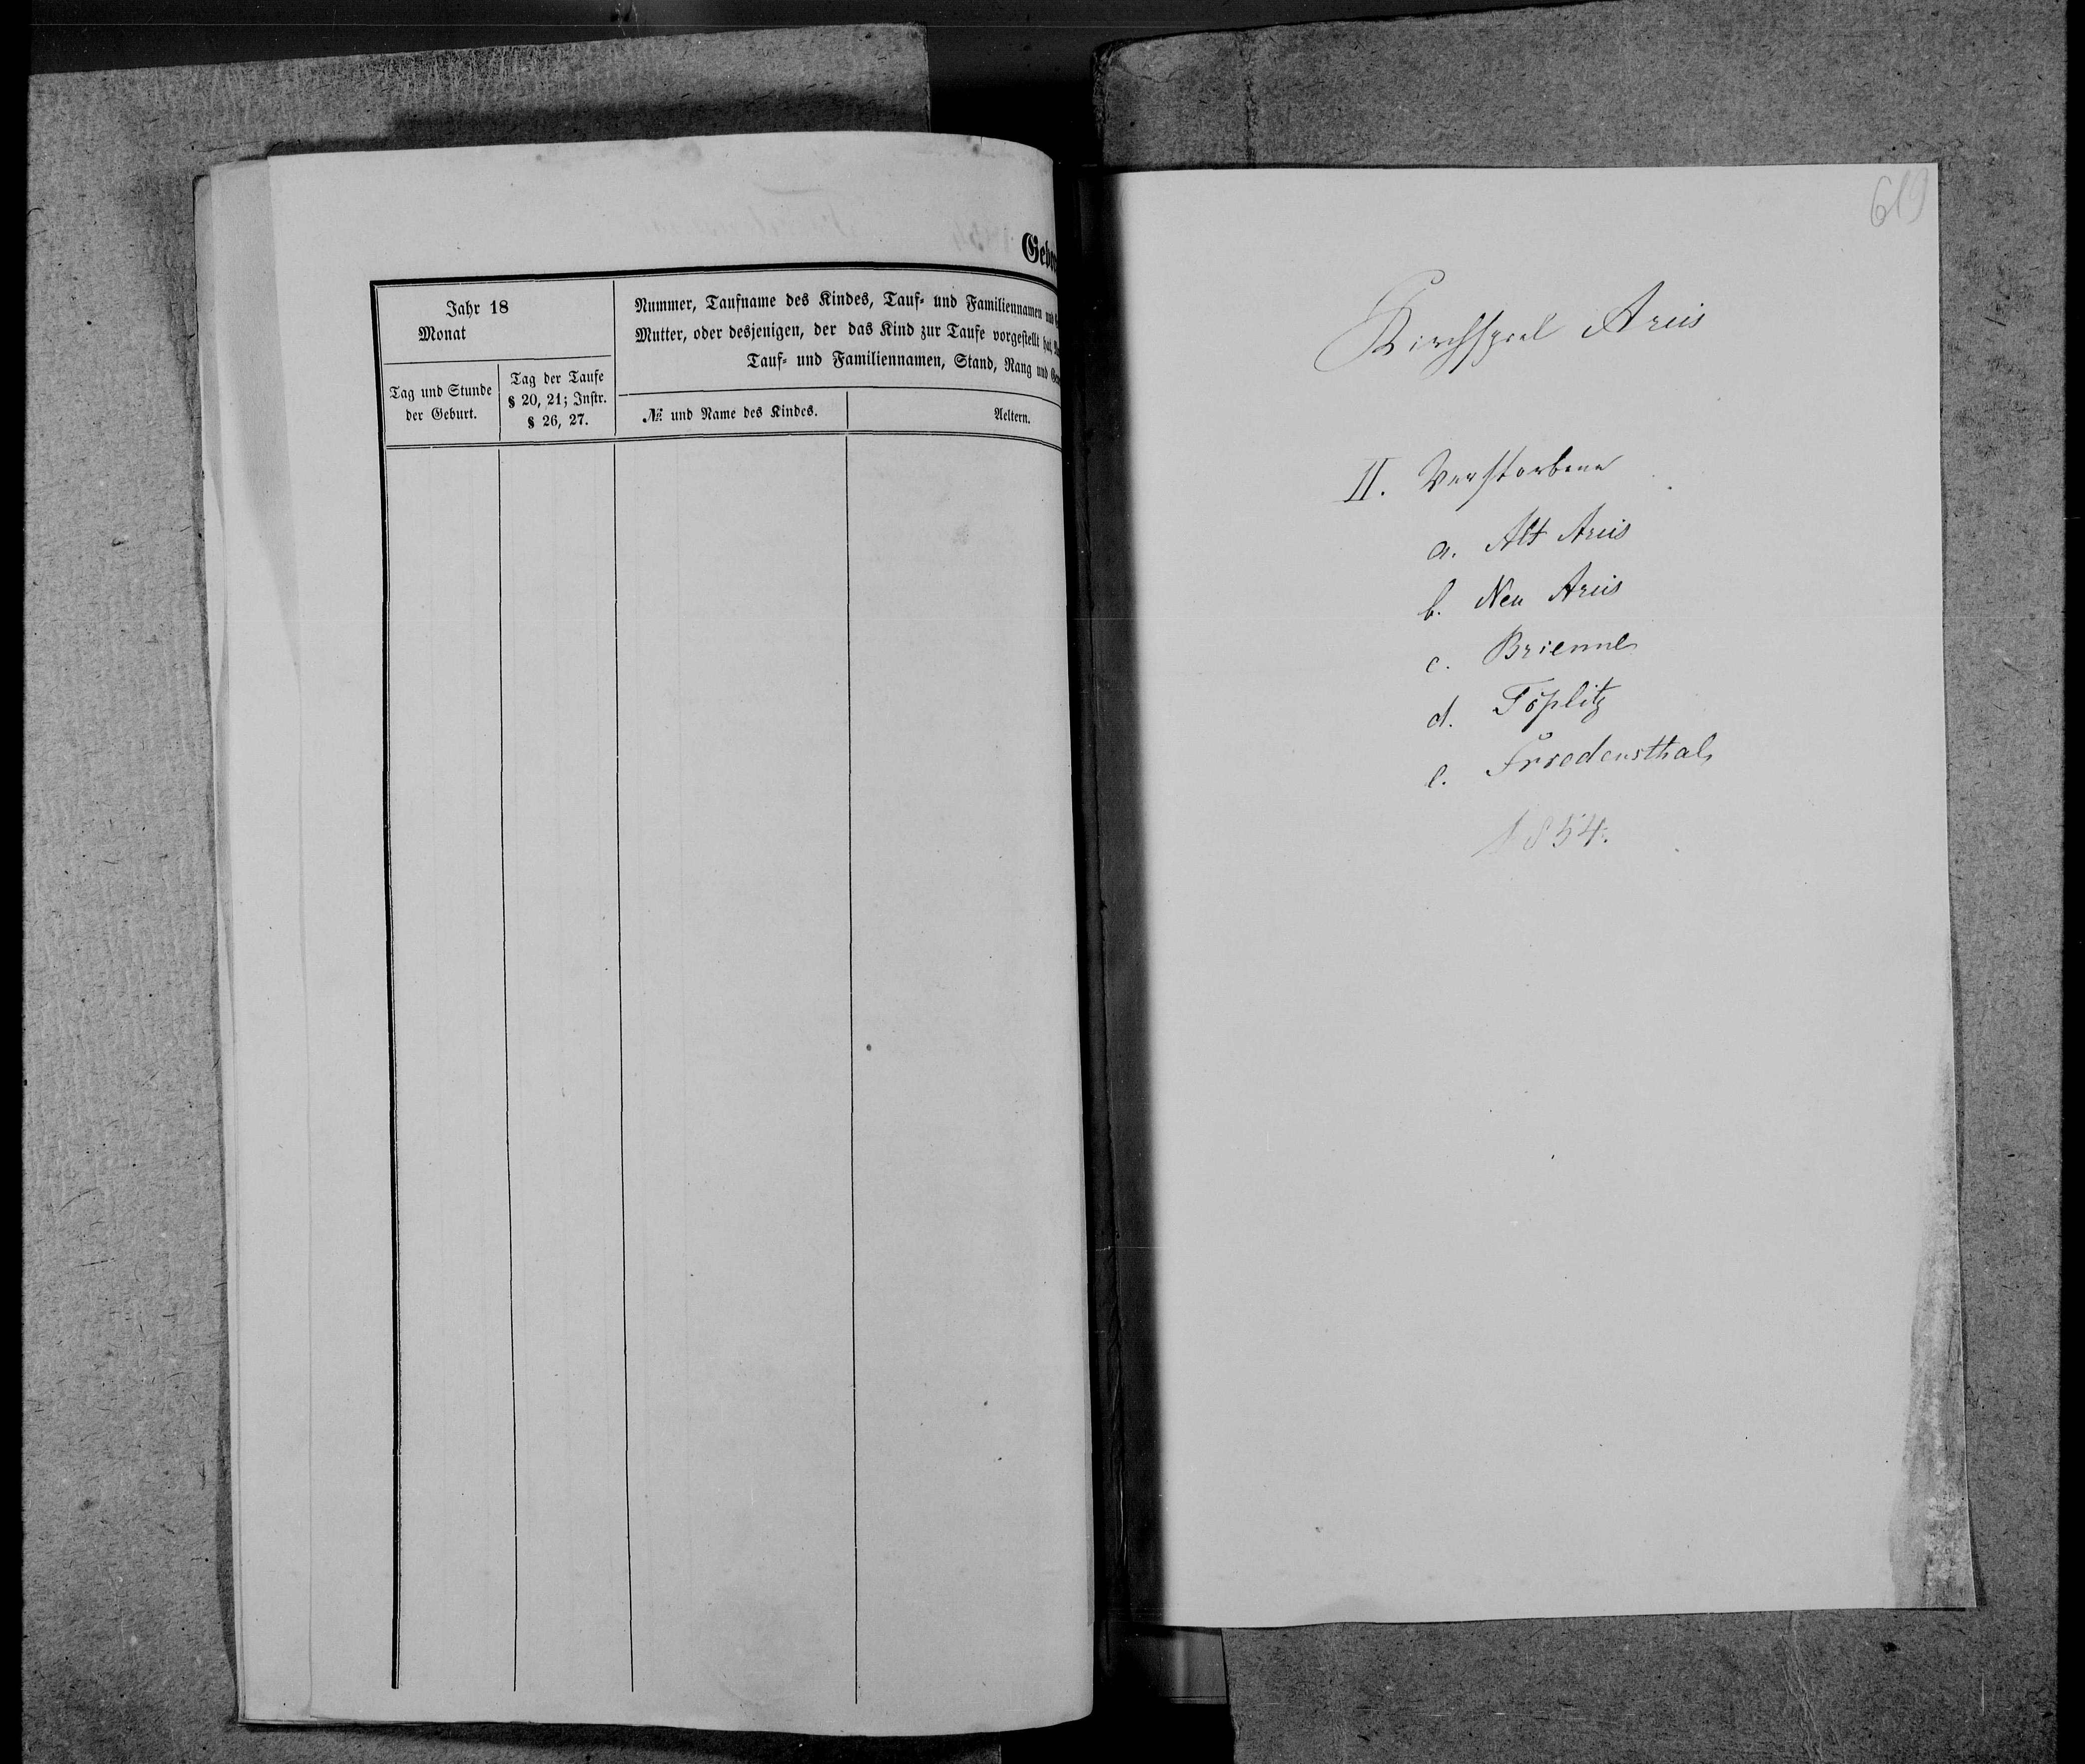 Jahr 18
Monat
Tag und Stunde
der Geburt.
Tag der Taufe
§ 20, 21; Instr.
§ 26, 27.
Nummer, Taufname des Kindes, Tauf- und Familiennamen und
Mutter, oder desjenigen, der das Kind zur Taufe vorgestellt hat,
Tauf- und Familiennamen, Stand, Rang und
№ und Name des Kindes.
Aeltern.
619
Kirchspiel Arcis
II. Verstorbene
a. Alt Arcis
b. Neu Arcis
c. Brienne
d. Töplitz
e. Friedensthal,
1854.